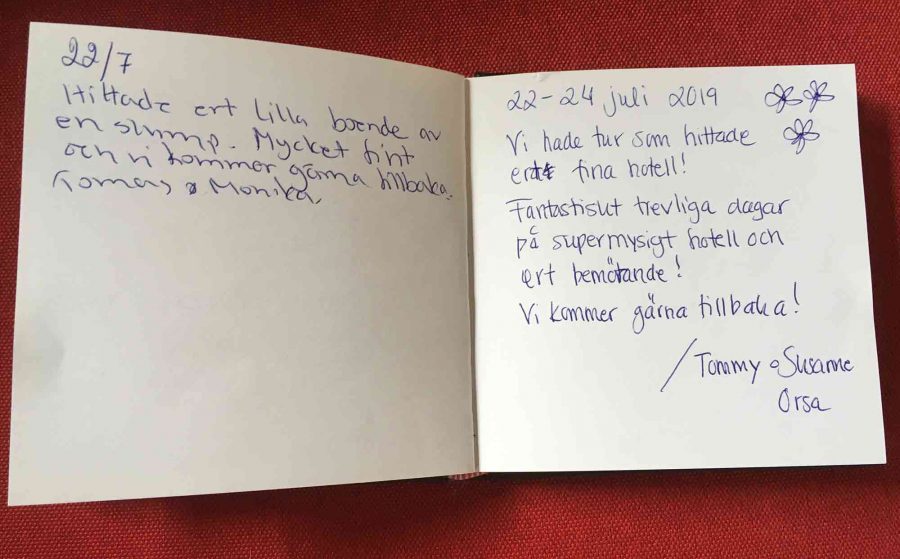 22/7
Hittade ert Lilla boende av
en slump. Mycket fint
och vi kommer gärna tillbaka.
Tomas & Monika
22-24 juli 2019
Vi hade tur som hittade
ert fina hotell!
Fantastiskt trevliga dagar
på supermysigt hotell och
ert bemötande!
Vi kommer gärna tillbaka!
/Tommy o Susanne
Orsa